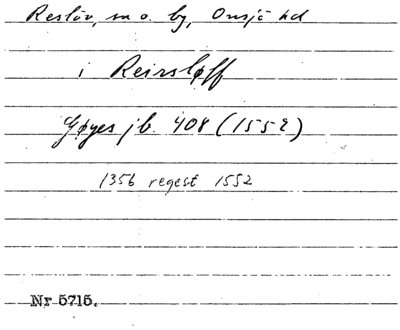 Reslöv, sn o. by, Onsjö hd
i Reirsløff
Gøyes jb. 408 (1552)
1356 regest 1552
Nr 5715.